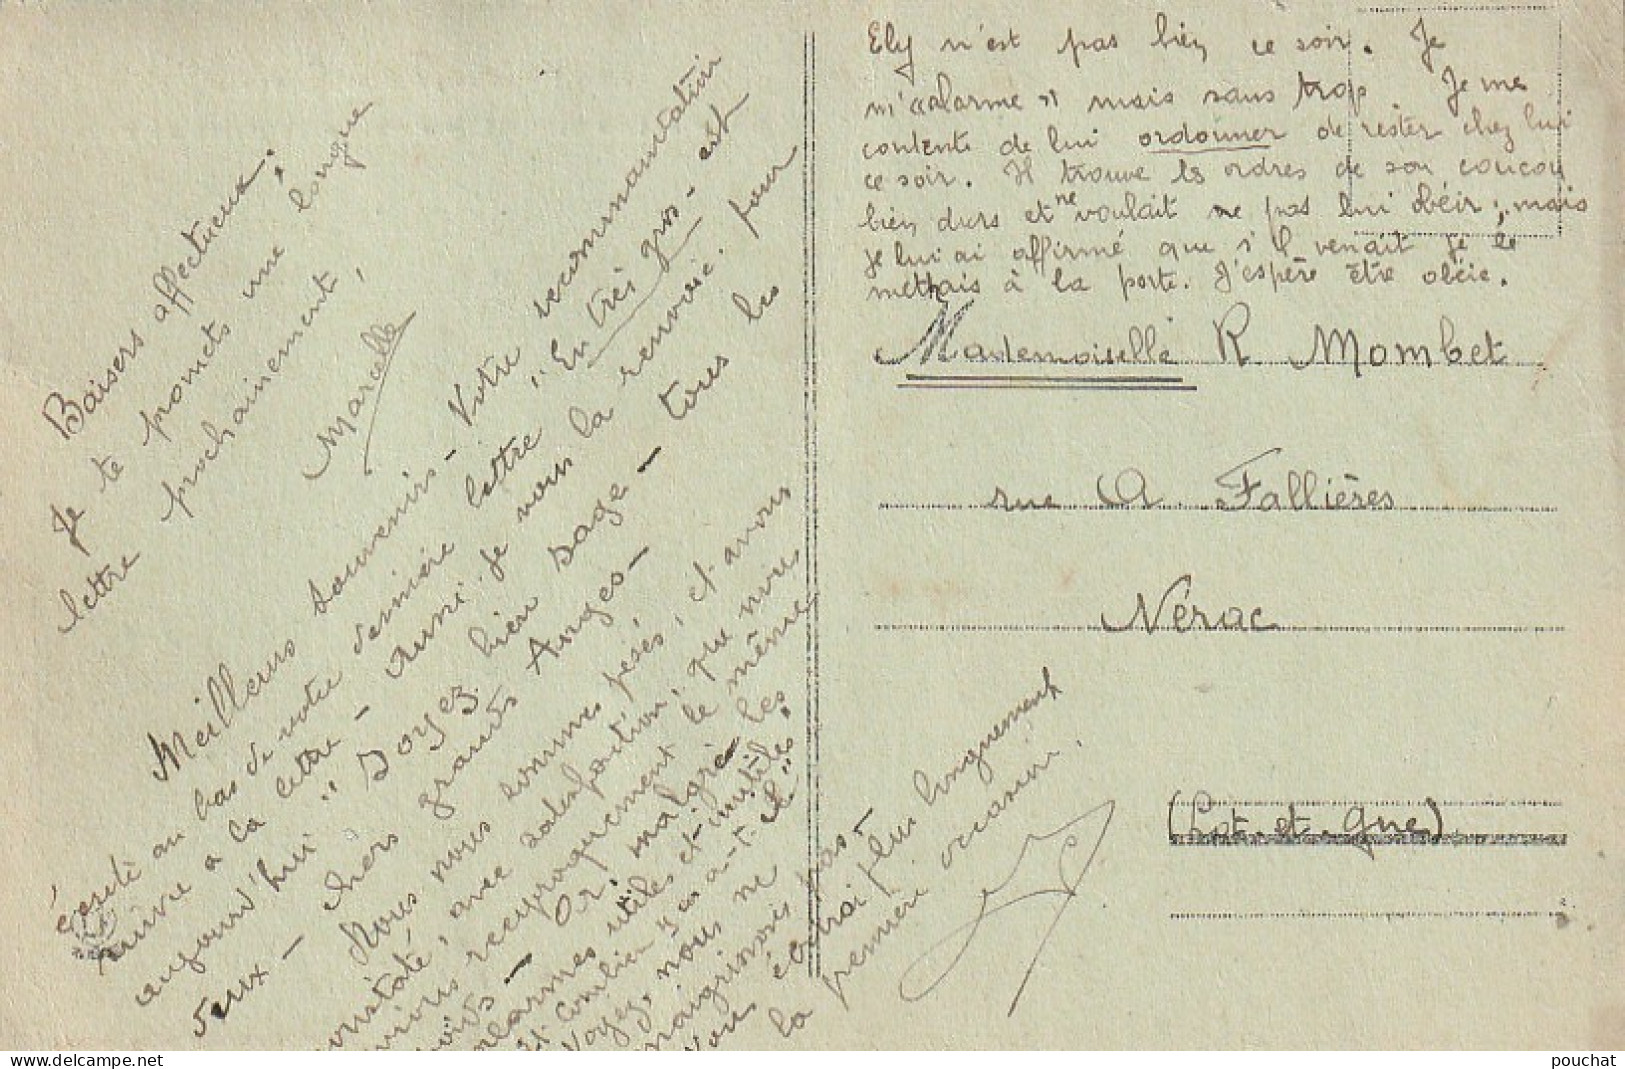 Baisers affectueux.
Je te promets une longue
lettre prochainement,
Marcelle
Meilleurs souvenirs - Votre recommandation
au bas de votre dernière lettre "En très gros - est
suivie à la lettre - Aussi je vous la renvoie. pour
aujourd'hui "Soyez bien sage - tous les
deux - chers grands Anges -
Nous nous sommes pesés, et avons
constaté, avec satisfaction, que nous
avions réciproquement le même
poids - Or, malgré les
alarmes utiles et inutiles
et combien y en a-t-il"
Voyez, nous ne
maigrissons pas -
Vous écrirai plus longuement
la première occasion.
Ely n'est pas bien ce soir. Je
m'alarme mais sans trop Je me
contente de lui ordonner de rester chez lui
ce soir. Il trouve les ordres de son coucou
bien durs et ne voulait pas lui obéir; mais
je lui ai affirmé que s'il venait je le
mettrais à la porte. J'espère être obéie.
Mademoiselle R Mombet
rue A. Fallières
Nérac
(Lot-et-Gne)
pouchat